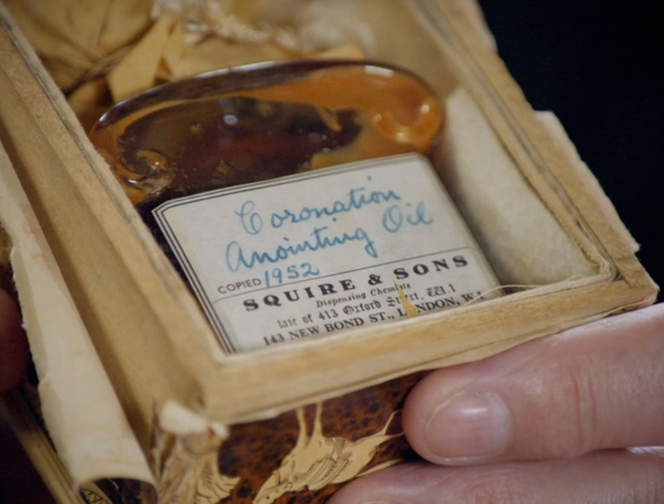 Coronation
Anointing Oil
COPIED 1952
SQUIRE & SONS
Dispensing Chemists
late of 413 Oxford Street, W.1
143 NEW BOND ST., LONDON, W.